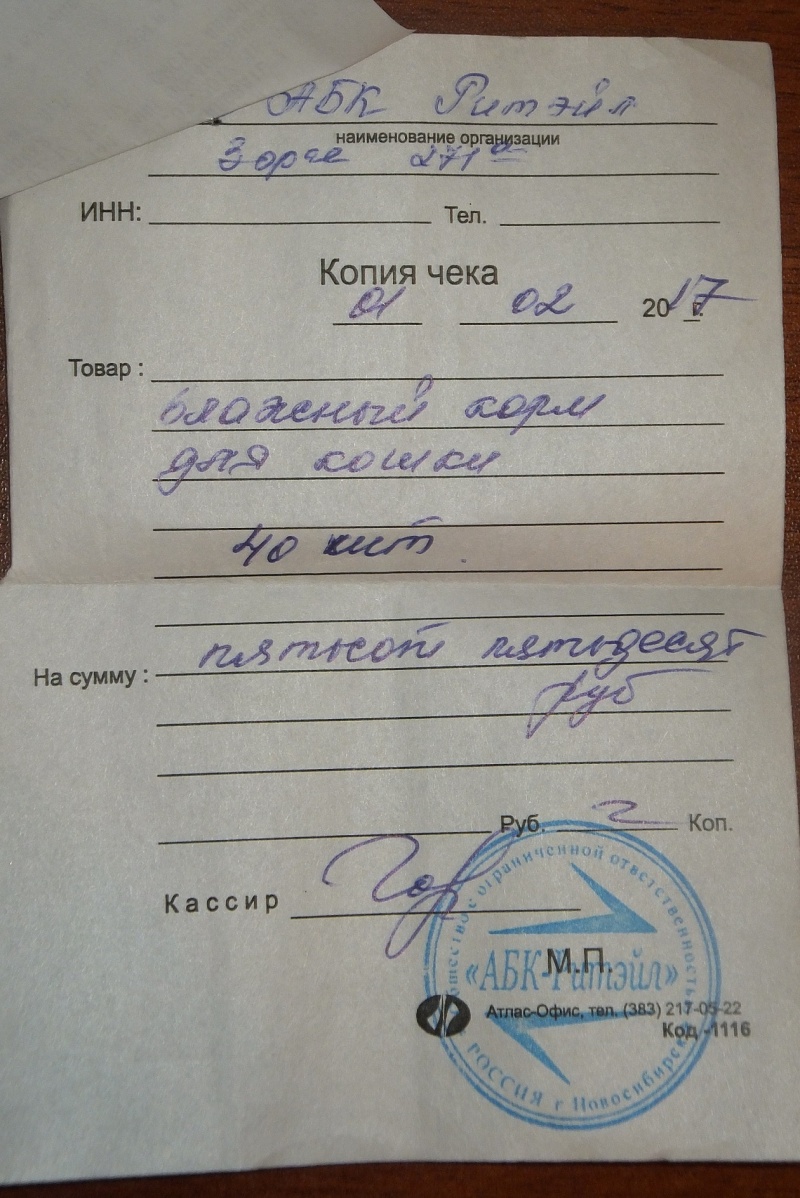 АБК Ритэйл
наименование организации
Зорге 271а
ИНН: Тел.
Копия чека
01 02 2017 г.
Товар :
влажный корм
для кошки
40 шт.
На сумму : пятьсот пятьдесят
руб
Руб. Коп.
Кассир
общество с ограниченной ответственностью
М.П.
«АБК-Ритэйл»
Атлас-Офис, тел. (383) 217-05-22
Код -1116
РОССИЯ г Новосибирск